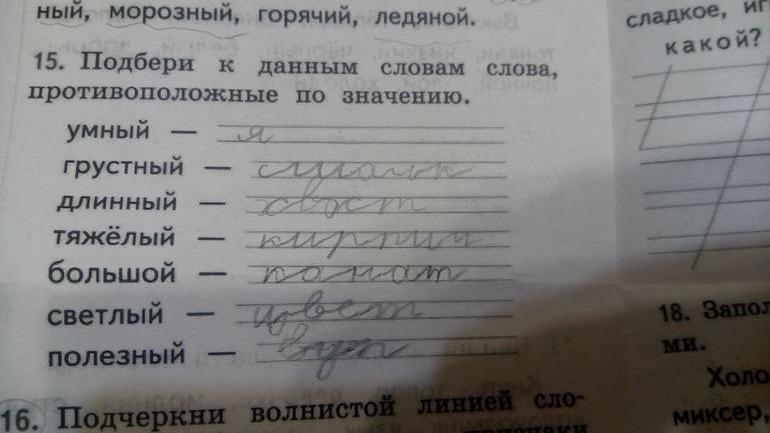 ный, морозный, горячий, ледяной.
15. Подбери к данным словам слова,
противоположные по значению.
умный — я
грустный —
длинный — хвост
тяжёлый — кирпич
большой — канат
светлый — цвет
полезный —
16. Подчеркни волнистой линией сло-
признаки
сладкое, иг
какой?
18. Запол
ми.
Холо
миксер,